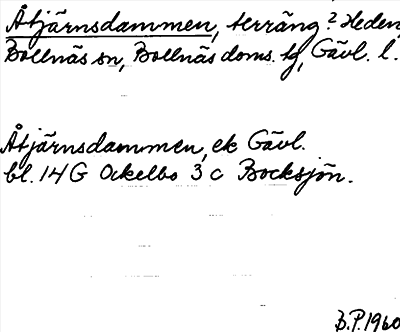 Åtjärnsdammen, terräng? Heden,
Bollnäs sn, Bollnäs doms. tg, Gävl. l.
Åtjärnsdammen, ek Gävl.
bl. 14 G Ockelbo 3 c Bocksjön.
B.P. 1960